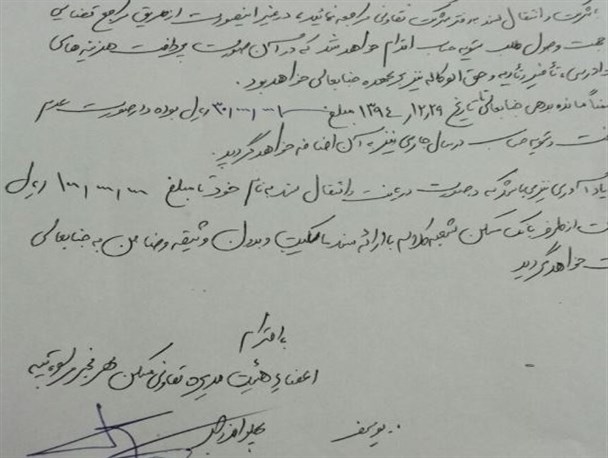 شرکت و انتقال سند به دفتر شرکت تعاونی مراجعه نمائید، در غیر اینصورت از طریق مراجع قضایی
جهت وصول طلب تسویه حساب اقدام خواهد شد که در آن صورت پرداخت هزینه های
دادرسی، تأخیر تأدیه و حق الوکاله نیز بر عهده جنابعالی خواهد بود.
ضمناً مانده بدهی جنابعالی تا تاریخ ۱۳۹۴/۱۲/۲۹ مبلغ ریال بوده و در صورت عدم
و تسویه حساب در سال جاری نیز به آن اضافه خواهد گردید.
یادآوری نیز می باشد که در صورت دریافت و انتقال سند به نام خود تا مبلغ ۱۰۰/۰۰۰/۰۰۰ ریال
از طرف بانک مسکن شعبه کلاله با ارائه سند مالکیت و بدون وثیقه و ضامن به جنابعالی
خواهد گردید
با احترام
اعضاء هیئت مدیره تعاونی مسکن مهر فجر
یوسف